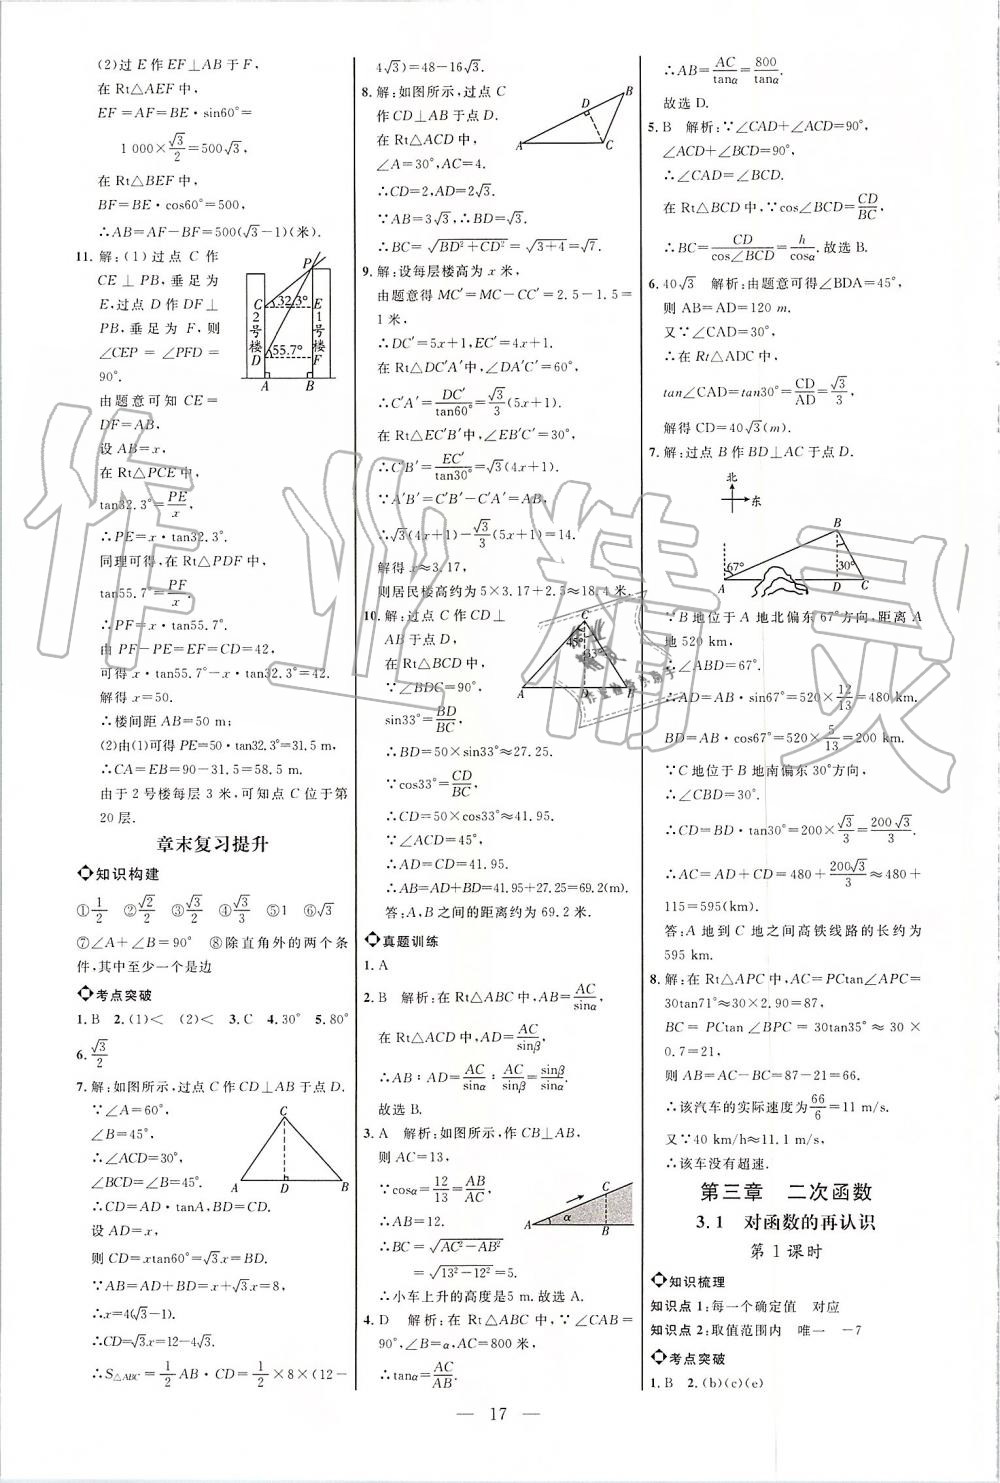 (2)过E作EF⊥AB于F,
在Rt△AEF中,
EF=AF=BE·sin60°=
1 000×√3/2=500√3,
在Rt△BEF中,
BF=BE·cos60°=500,
∴AB=AF-BF=500(√3-1)(米).
11.解:(1)过点C作
CE⊥PB,垂足为
E,过点D作DF⊥
PB,垂足为F,则
∠CEP=∠PFD=
90°.
由题意可知CE=
DF=AB,
设AB=x,
在Rt△PCE中,
tan32.3°=PE/x,
∴PE=x·tan32.3°.
同理可得,在Rt△PDF中,
tan55.7°=PF/x.
∴PF=x·tan55.7°.
由PF-PE=EF=CD=42,
可得x·tan55.7°-x·tan32.3°=42.
解得x=50.
∴楼间距AB=50 m;
(2)由(1)可得PE=50·tan32.3°=31.5 m,
∴CA=EB=90-31.5=58.5 m.
由于2号楼每层3米,可知点C位于第
20层.
P
C
32.3°
E
2号楼
1号楼
D
55.7°
F
A
B
章末复习提升
知识构建
①1/2 ②√2/2 ③√3/2 ④√3/3 ⑤1 ⑥√3
⑦∠A+∠B=90° ⑧除直角外的两个条
件,其中至少一个是边
考点突破
1.B 2.(1)< (2)< 3.C 4.30° 5.80°
6.√3/2
7.解:如图所示,过点C作CD⊥AB于点D.
∵∠A=60°,
∠B=45°,
∴∠ACD=30°,
∠BCD=∠B=45°.
∴CD=AD·tanA,BD=CD.
设AD=x,
则CD=xtan60°=√3x,BD=√3x.
∵AB=AD+BD=x+√3x=8,
∴x=4(√3-1).
∴CD=√3x=12-4√3.
∴S△ABC=1/2AB·CD=1/2×8×(12-
C
A
D
B
4√3)=48-16√3.
8.解:如图所示,过点C
作CD⊥AB于点D.
在Rt△ACD中,
∠A=30°,AC=4.
∴CD=2,AD=2√3.
∵AB=3√3,∴BD=√3.
∴BC=√(BD²+CD²)=√(3+4)=√7.
B
D
A
C
9.解:设每层楼高为x米,
由题意得MC′=MC-CC′=2.5-1.5=
1米,
∴DC′=5x+1,EC′=4x+1.
在Rt△DC′A′中,∠DA′C′=60°,
∴C′A′=DC′/tan60°=√3/3(5x+1).
在Rt△EC′B′中,∠EB′C′=30°,
∴C′B′=EC′/tan30°=√3(4x+1).
∵A′B′=C′B′-C′A′=AB,
∴√3(4x+1)-√3/3(5x+1)=14.
解得x≈3.17,
则居民楼高约为5×3.17+2.5≈18.4米.
10.解:过点C作CD⊥
AB于点D,
在Rt△BCD中,
∵∠BDC=90°,
sin33°=BD/BC,
∴BD=50×sin33°≈27.25.
∵cos33°=CD/BC,
∴CD=50×cos33°≈41.95.
∵∠ACD=45°,
∴AD=CD=41.95.
∴AB=AD+BD=41.95+27.25≈69.2(m).
答:A,B之间的距离约为69.2米.
C
45°
33°
A
D
B
真题训练
1.A
2.B 解析:在Rt△ABC中,AB=AC/sinα,
在Rt△ACD中,AD=AC/sinβ,
∴AB∶AD=AC/sinα∶AC/sinβ=sinβ/sinα,
故选B.
3.A 解析:如图所示,作CB⊥AB,
则AC=13,
∵cosα=12/13=AB/AC,
∴AB=12.
∴BC=√(AC²-AB²)
=√(13²-12²)=5.
∴小车上升的高度是5 m.故选A.
C
A
α
B
4.D 解析:在Rt△ABC中,∵∠CAB=
90°,∠B=α,AC=800米,
∴tanα=AC/AB.
∴AB=AC/tanα=800/tanα.
故选D.
5.B 解析:∵∠CAD+∠ACD=90°,
∠ACD+∠BCD=90°,
∴∠CAD=∠BCD.
在Rt△BCD中,∵cos∠BCD=CD/BC,
∴BC=CD/cos∠BCD=h/cosα.故选B.
6.40√3 解析:由题意可得∠BDA=45°,
则AB=AD=120 m.
又∵∠CAD=30°,
∴在Rt△ADC中,
tan∠CAD=tan30°=CD/AD=√3/3,
解得CD=40√3(m).
7.解:过点B作BD⊥AC于点D.
北
东
B
67°
30°
A
D
C
∵B地位于A地北偏东67°方向,距离A
地520 km,
∴∠ABD=67°.
∴AD=AB·sin67°=520×12/13=480 km.
BD=AB·cos67°=520×5/13=200 km.
∵C地位于B地南偏东30°方向,
∴∠CBD=30°.
∴CD=BD·tan30°=200×√3/3=200√3/3.
∴AC=AD+CD=480+200√3/3≈480+
115=595(km).
答:A地到C地之间高铁线路的长约为
595 km.
8.解:在Rt△APC中,AC=PCtan∠APC=
30tan71°≈30×2.90=87,
BC=PCtan∠BPC=30tan35°≈30×
0.7=21,
则AB=AC-BC=87-21=66.
∴该汽车的实际速度为66/6=11 m/s.
又∵40 km/h≈11.1 m/s,
∴该车没有超速.
第三章 二次函数
3.1 对函数的再认识
第1课时
知识梳理
知识点1:每一个确定值 对应
知识点2:取值范围内 唯一 -7
考点突破
1.B 2.(b)(c)(e)
— 17 —
作业精灵